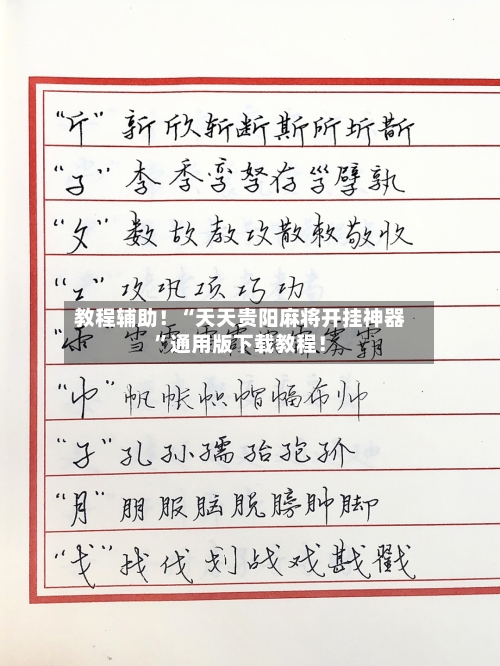 “斤” 新欣斩断斯所圻斮
“子” 李季孪孥存孳孽孰
“攵” 数故教攻散敕敬收
“工” 攻巩项巧功
教程辅助！“天天贵阳麻将开挂神器
”通用版下载教程！
“雨” 雪 霸
“巾” 帆帐帜帽幅布帅
“子” 孔孙孺孡孢孖
“月” 朋服脑脱膀肿脚
“戈” 找伐划战戏戡戳